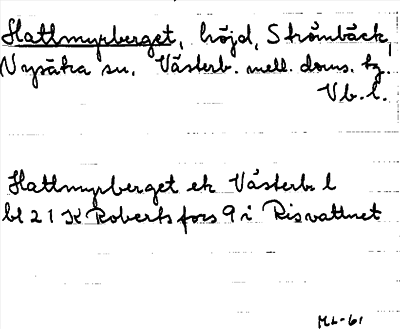 Hattmyrberget, höjd, Strömbäck,
Nysätra sn. Västerb. mell. doms. tg.
Vb. l.
Hattmyrberget ek Västerb l
bl 21 K Robertsfors 9 i Risvattnet
Mb-61